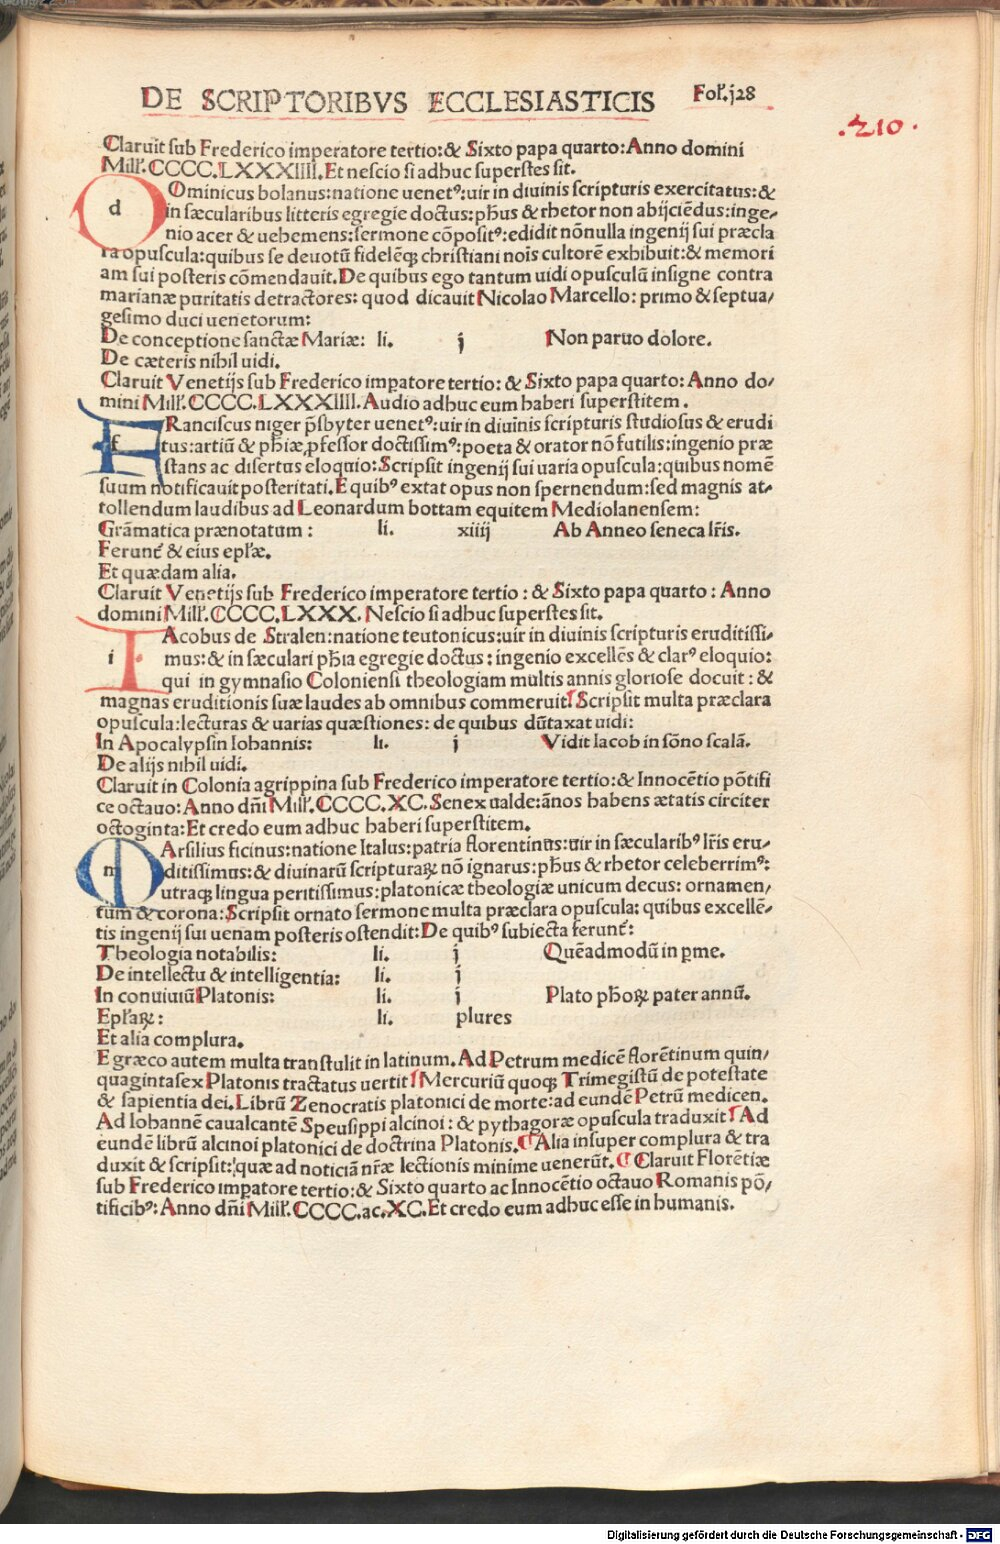 DE SCRIPTORIBVS ECCLESIASTICIS Fol̄.j28
.210.
Claruit sub Frederico imperatore tertio:& Sixto papa quarto:Anno domini
Mill̄.CCCC.LXXXIIII.Et nescio si adhuc superstes sit.
d Ominicus bolanus:natione uenetꝰ:uir in diuinis scripturis exercitatus:&
in sæcularibus litteris egregie doctus:pħus & rhetor non abijciēdus:inge-
nio acer & uehemens:sermone cōpositꝰ:edidit nōnulla ingenij sui præcla
ra opuscula:quibus se deuotū fidelēqꝫ christiani nois cultorē exhibuit:& memori
am sui posteris cōmendauit.De quibus ego tantum uidi opusculū insigne contra
marianæ puritatis detractores: quod dicauit Nicolao Marcello: primo & septua/
gesimo duci uenetorum:
De conceptione sanctæ Mariæ: li. j Non paruo dolore.
De cæteris nihil uidi.
Claruit Venetijs sub Frederico imꝑatore tertio: & Sixto papa quarto: Anno do/
mini Mill̄.CCCC.LXXXIIII.Audio adhuc eum haberi superstitem.
f Ranciscus niger p̄sbyter uenetꝰ:uir in diuinis scripturis studiosus & erudi
tus:artiū & pħiæ ꝓfessor doctissimꝰ:poeta & orator nō futilis:ingenio præ
stans ac disertus eloquio:Scripsit ingenij sui uaria opuscula:quibus nomē
suum notificauit posteritati.E quibꝰ extat opus non spernendum:sed magnis at-
tollendum laudibus ad Leonardum bottam equitem Mediolanensem:
Grāmatica prænotatum: li. xiiij Ab Anneo seneca lr̄is.
Ferunt̄ & eius epl̄æ.
Et quædam alia.
Claruit Venetijs sub Frederico imperatore tertio: & Sixto papa quarto: Anno
domini Mill̄.CCCC.LXXX. Nescio si adhuc superstes sit.
i Acobus de Stralen:natione teutonicus:uir in diuinis scripturis eruditissi-
mus:& in sæculari pħia egregie doctus: ingenio excellēs & clarꝰ eloquio:
qui in gymnasio Coloniensi theologiam multis annis gloriose docuit: &
magnas eruditionis suæ laudes ab omnibus commeruit. Scripsit multa præclara
opuscula:lecturas & uarias quæstiones: de quibus dūtaxat uidi:
In Apocalypsin Iohannis: li. j Vidit Iacob in sōno scalā.
De alijs nihil uidi.
Claruit in Colonia agrippina sub Frederico imperatore tertio:& Innocētio pōtifi
ce octauo: Anno dn̄i Mill̄.CCCC.XC.Senex ualde:ānos habens ætatis circiter
octoginta:Et credo eum adhuc haberi superstitem.
m Arsilius ficinus:natione Italus:patria florentinus:uir in sæcularibꝰ lr̄is eru-
ditissimus:& diuinarū scripturaꝝ nō ignarus:pħus & rhetor celeberrimꝰ:
utraqꝫ lingua peritissimus:platonicæ theologiæ unicum decus: ornamen/
tum & corona:Scripsit ornato sermone multa præclara opuscula: quibus excellē-
tis ingenij sui uenam posteris ostendit:De quibꝰ subiecta ferunt̄:
Theologia notabilis: li. j Quēadmodū in ꝑme.
De intellectu & intelligentia: li. j
In conuiuiū Platonis: li. j Plato pħoꝝ pater annū.
Epl̄aꝝ: li. plures
Et alia complura.
E græco autem multa transtulit in latinum.Ad Petrum medicē florētinum quin/
quagintasex Platonis tractatus uertit. Mercuriū quoqꝫ Trimegistū de potestate
& sapientia dei.Librū Zenocratis platonici de morte:ad eundē Petrū medicen.
Ad Iohannē caualcantē Speusippi alcinoi: & pythagoræ opuscula traduxit. Ad
eundē librū alcinoi platonici de doctrina Platonis. Alia insuper complura & tra
duxit & scripsit: quæ ad noticiā nr̄æ lectionis minime uenerūt. Claruit Florētiæ
sub Frederico imꝑatore tertio:& Sixto quarto ac Innocētio octauo Romanis pō/
tificibꝰ:Anno dn̄i Mill̄.CCCC.ac.XC.Et credo eum adhuc esse in humanis.
Digitalisierung gefördert durch die Deutsche Forschungsgemeinschaft - DFG